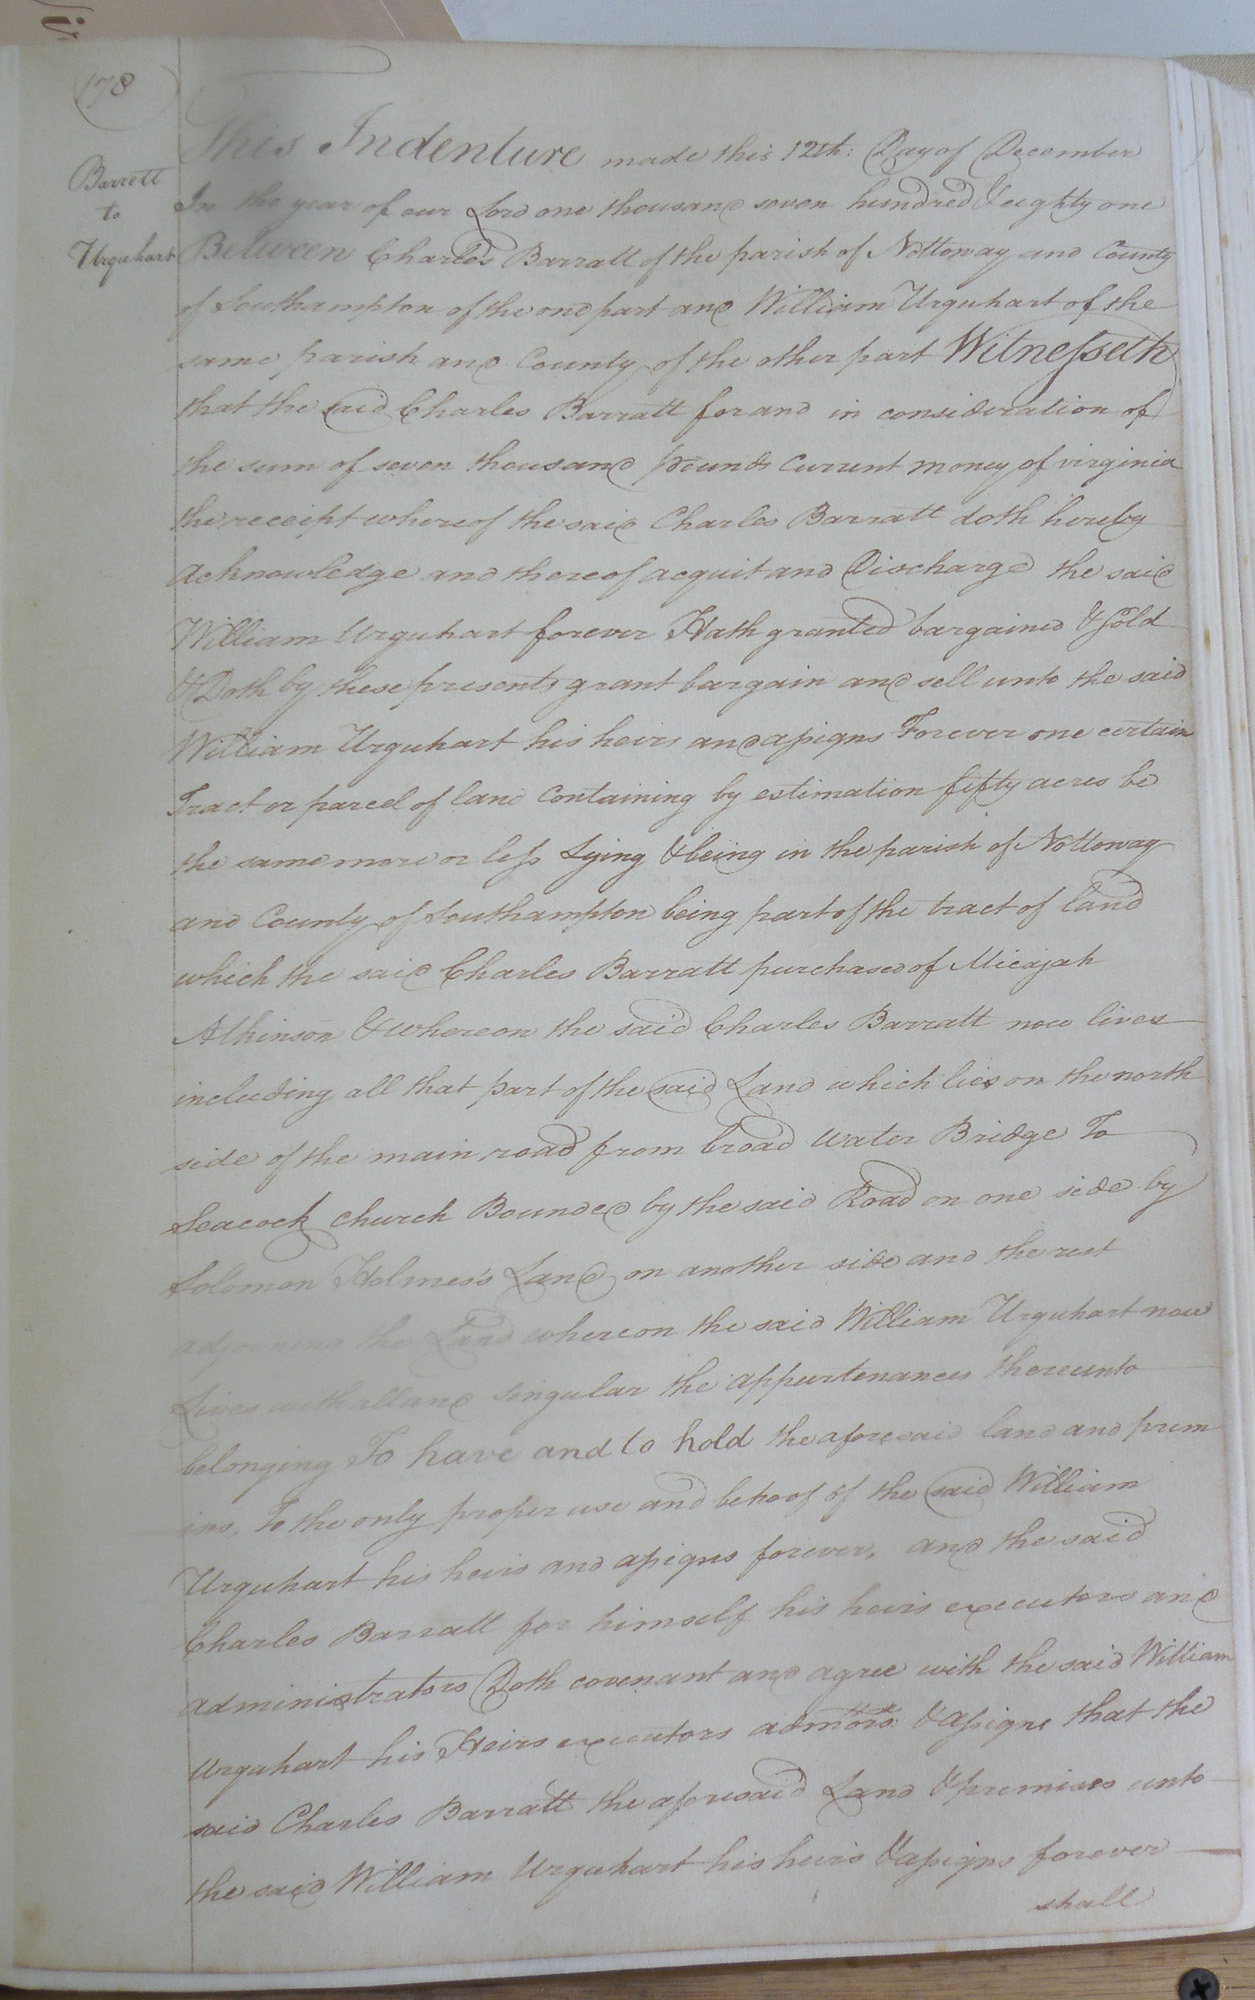 178
Barrett
to
Urquhart
This Indenture made this 12th: Day of December
In the year of our Lord one thousand seven hundred & eighty one
Between Charles Barratt of the parish of Nottoway and County
of Southampton of the one part and William Urquhart of the
same parish and County of the other part Witnesseth
that the said Charles Barratt for and in consideration of
the sum of seven thousand pounds Current money of virginia
the receipt whereof the said Charles Barratt doth hereby
Acknowledge and thereof acquit and Discharge the said
William Urquhart forever Hath granted bargained & sold
& Doth by these presents grant bargain and sell unto the said
William Urquhart his heirs and assigns Forever one certain
Tract or parcel of land Containing by estimation fifty acres be
the same more or less Lying & being in the parish of Nottoway
and County of Southampton being part of the tract of land
which the said Charles Barratt purchased of Micajah
Atkinson & whereon the said Charles Barratt now lives
including all that part of the said Land which lies on the north
side of the main road from broad Water Bridge To
Seacock Church Bounded by the said Road on one side by
Solomon Holmes's Land on another side and the rest
adjoining the Land whereon the said William Urquhart now
Lives with all and singular the appurtenances thereunto
belonging To have and to hold the aforesaid land and prem
ises, To the only proper use and behoof of the said William
Urquhart his heirs and assigns forever, and the said
Charles Barratt for himself his heirs executors and
administrators Doth covenant and agree with the said William
Urquhart his Heirs executors admtors: & assigns that the
said Charles Barratt the aforesaid Land & premises unto
the said William Urquhart his heirs & assigns forever
shall